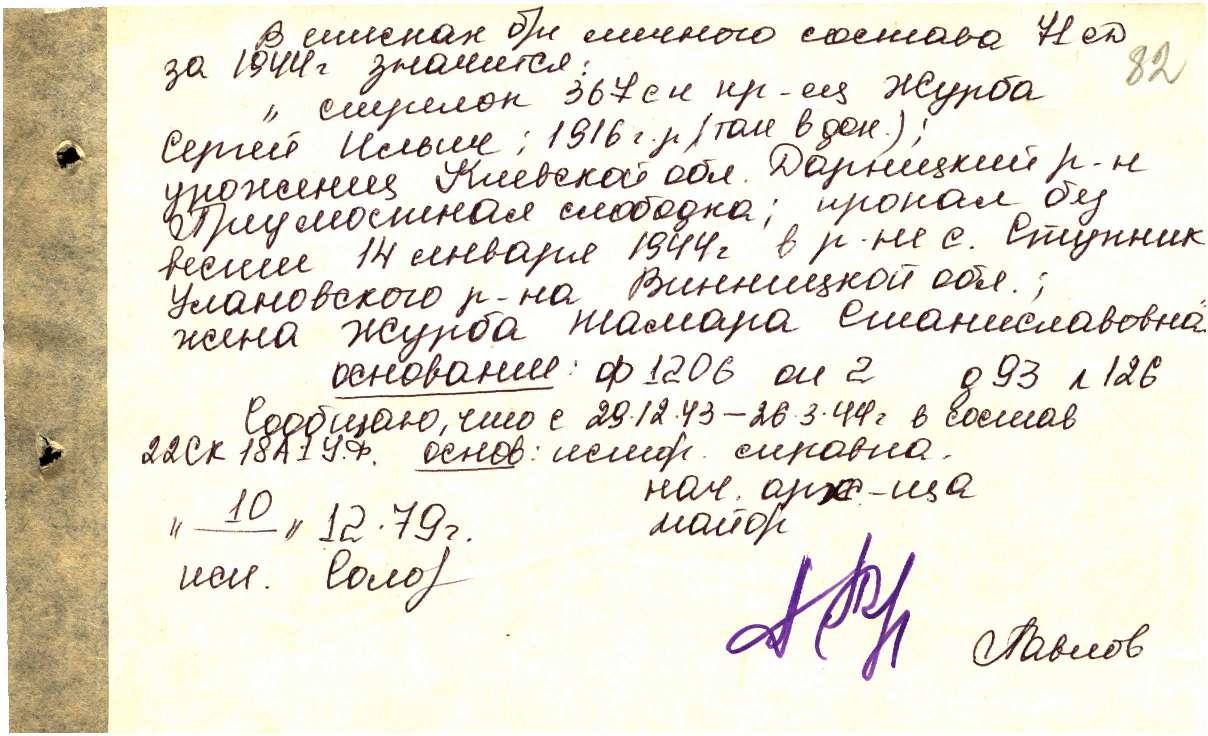 В списках б/п личного состава 71 сд
за 1944г значится:
82
„ стрелок 367 сп кр-ец Журба
Сергей Ильич; 1916 г.р. (так в док.);
уроженец Киевской обл. Дарницкий р-н
Предмостная слободка; пропал без
вести 14 января 1944г в р-не с. Ступник
Улановского р-на Винницкой обл.;
жена Журба Тамара Станиславовна"
основание: ф 1206 оп 2 д 93 л 126
Сообщаю, что с 29.12.43 – 26.3.44г в состав
22СК 18А 1 У.Ф. основ: истор. справка.
нач. арх-ща
„ 10 „ 12.79г.
майор
исп.
Павлов